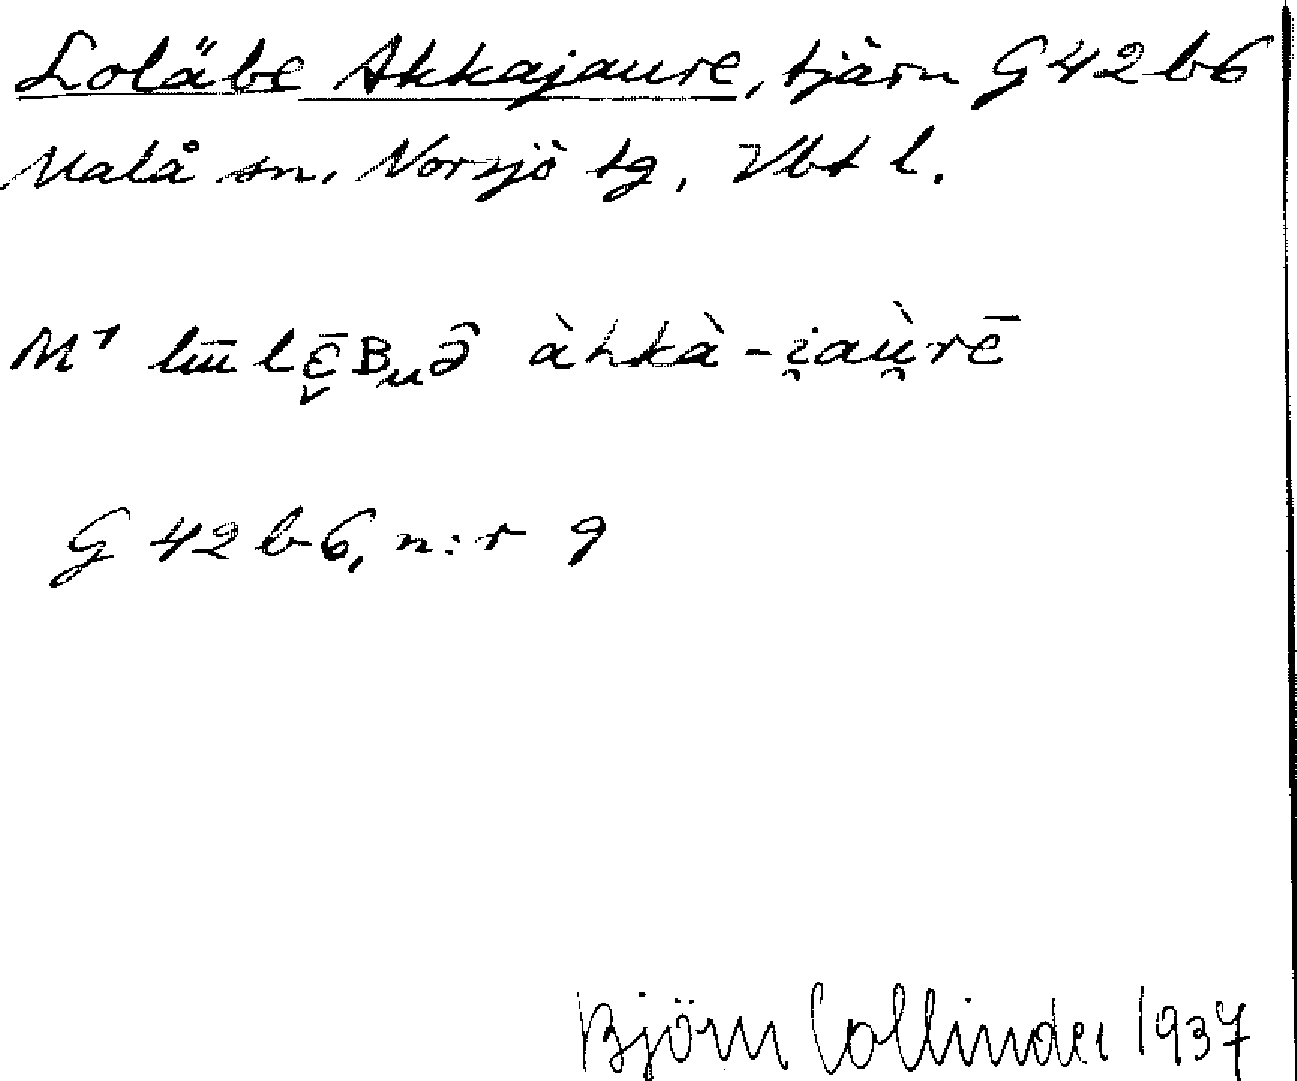 Loläbe Akkajaure, tjärn G42b6
Malå sn. Norsjö tg, Vbt l.
M¹ lūlɛ̬̄Bᵤə̑ àhkà-i̯aù̯rē
G 42 b 6, n:r 9
Björn Collinder 1937